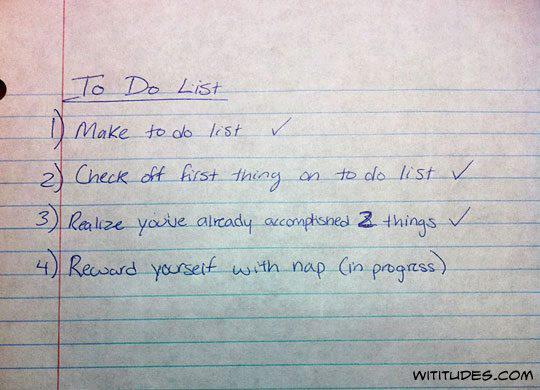 To Do List
1) Make to do list ✓
2) Check off first thing on to do list ✓
3) Realize you've already accomplished 2 things ✓
4) Reward yourself with nap (in progress)
WITITUDES.COM